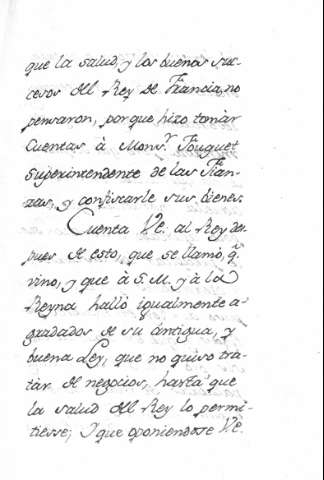 que la salud, y los buenos suc-
cesos del Rey de Francia, no
pensaron, porque hizo tomar
Cuentas à Monsr. Fouguet
Superintendente de las Finan-
zas, y confiscarle sus bienes.
Cuenta Ve. al Rey des-
pues de esto, que se llamò, q.
vino, y que à S. M. y à la
Reyna hallò igualmente a-
gradados de su antigua, y
buena Ley, que no quiso tra-
tàr de negocios, hasta que
la salud del Rey lo permi-
tiesse; Y que oponiendose Ve.